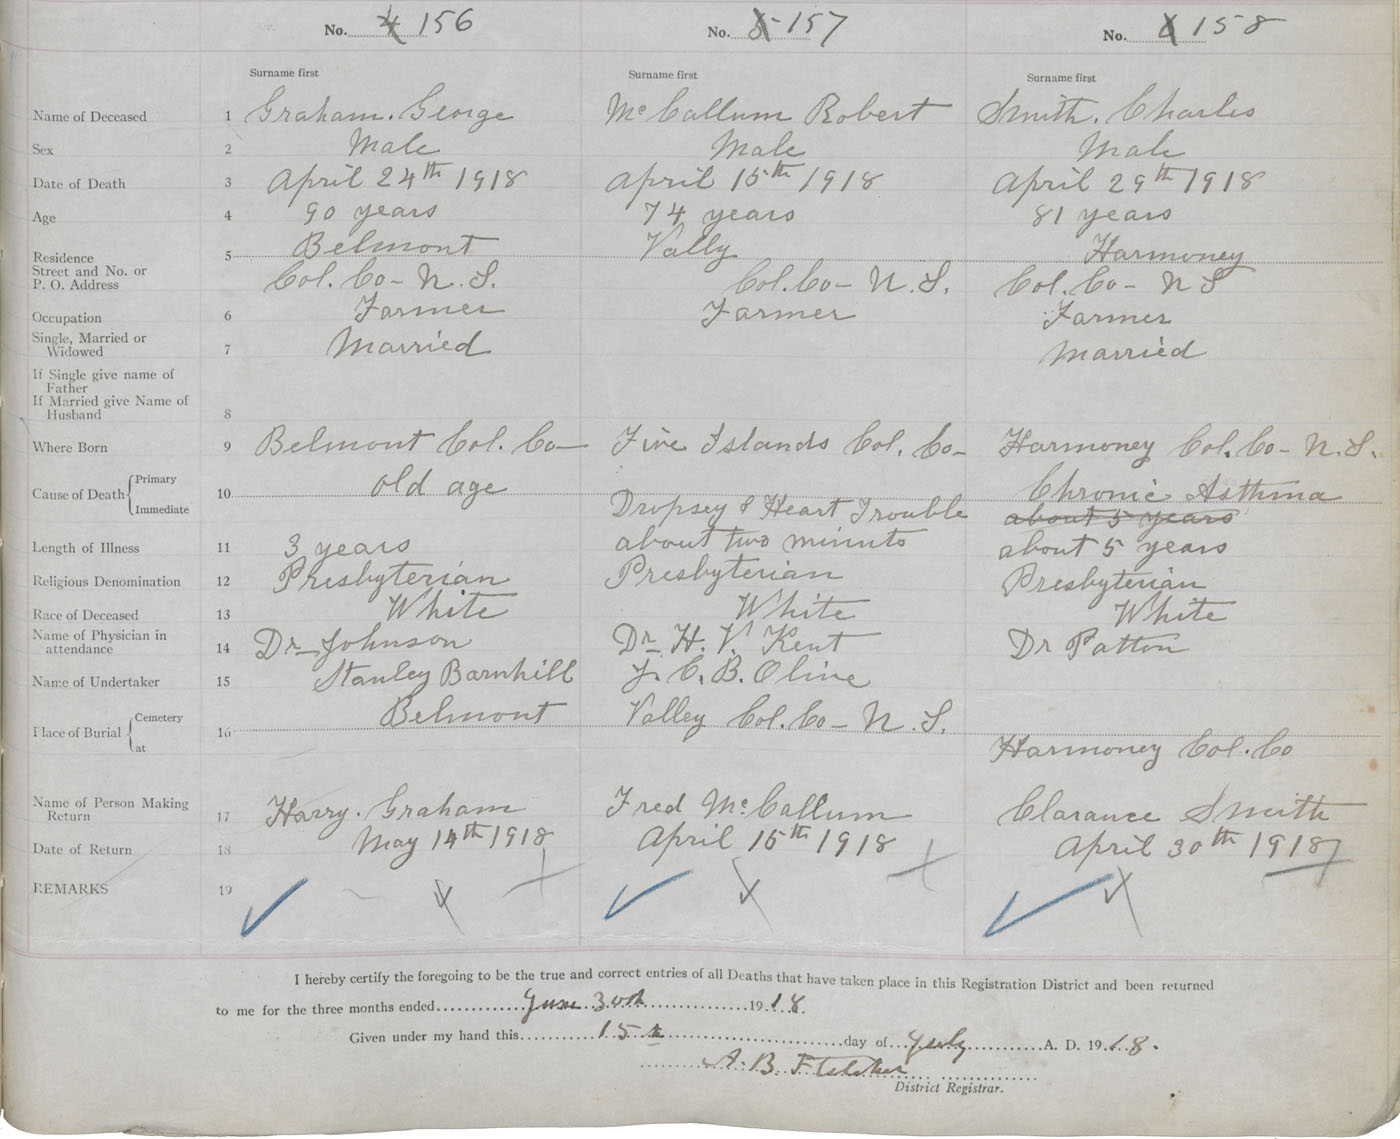 No. 4 156 No. 5 157 No. 6 158
Surname first Surname first Surname first
Name of Deceased 1 Graham. George McCallum Robert Smith. Charles
Sex 2 Male Male Male
Date of Death 3 April 24th 1918 April 15th 1918 April 29th 1918
Age 4 90 years 74 years 81 years
Residence 5 Belmont Vally Harmoney
Street and No. or
P. O. Address Col. Co- N. S. Col. Co- N. S. Col. Co- N S
Occupation 6 Farmer Farmer Farmer
Single, Married or
Widowed 7 Married Married
If Single give name of
Father
If Married give Name of
Husband 8
Where Born 9 Belmont Col. Co- Five Islands Col. Co- Harmoney Col. Co- N. S.
Cause of Death { Primary 10 old age Chronic Asthma
Immediate Dropsey & Heart Trouble about 5 years
Length of Illness 11 3 years about two minuts about 5 years
Religious Denomination 12 Presbyterian Presbyterian Presbyterian
Race of Deceased 13 White White White
Name of Physician in
attendance 14 Dr- Johnson Dr- H. V. Kent Dr Patton
Name of Undertaker 15 Stanley Barnhill C. B. Oline
Place of Burial { Cemetery 16 Belmont Valley Col. Co- N. S.
at Harmoney Col. Co
Name of Person Making
Return 17 Harry. Graham Fred McCallum Clarance Smith
Date of Return 18 May 14th 1918 April 15th 1918 April 30th 1918
REMARKS 19
I hereby certify the foregoing to be the true and correct entries of all Deaths that have taken place in this Registration District and been returned
to me for the three months ended June 30th 1918.
Given under my hand this 15th day of July A. D. 1918.
A. B. Fletcher
District Registrar.